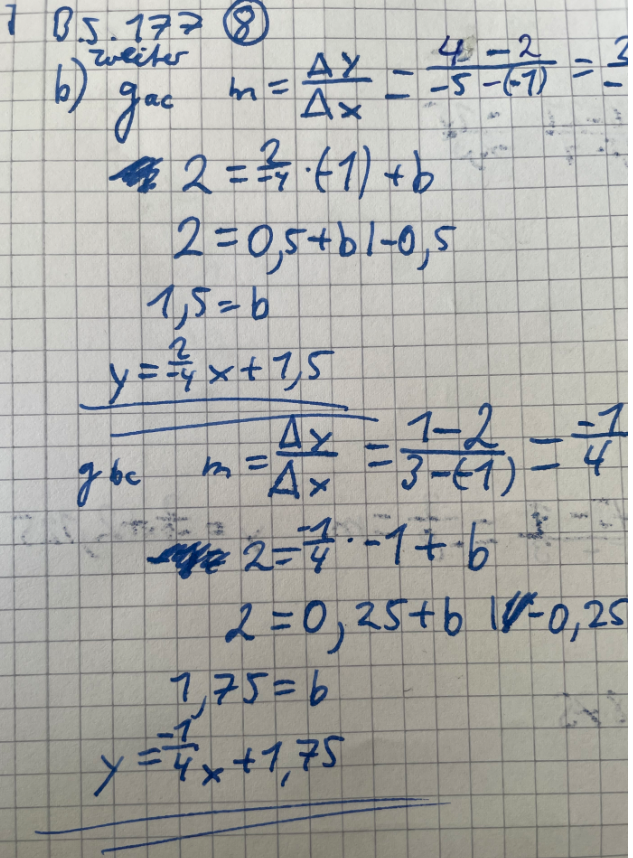 B.S. 177 ⑧
zweiter
b) gac m = Δy/Δx = 4-2/-5-(-1) =
2 = 2/-4 · (-1) + b
2 = 0,5 + b |-0,5
1,5 = b
y = 2/-4 x + 1,5
gbc m = Δy/Δx = 1-2/3-(-1) = -1/4
2 = -1/4 · -1 + b
2 = 0,25 + b |-0,25
1,75 = b
y = -1/4 x + 1,75